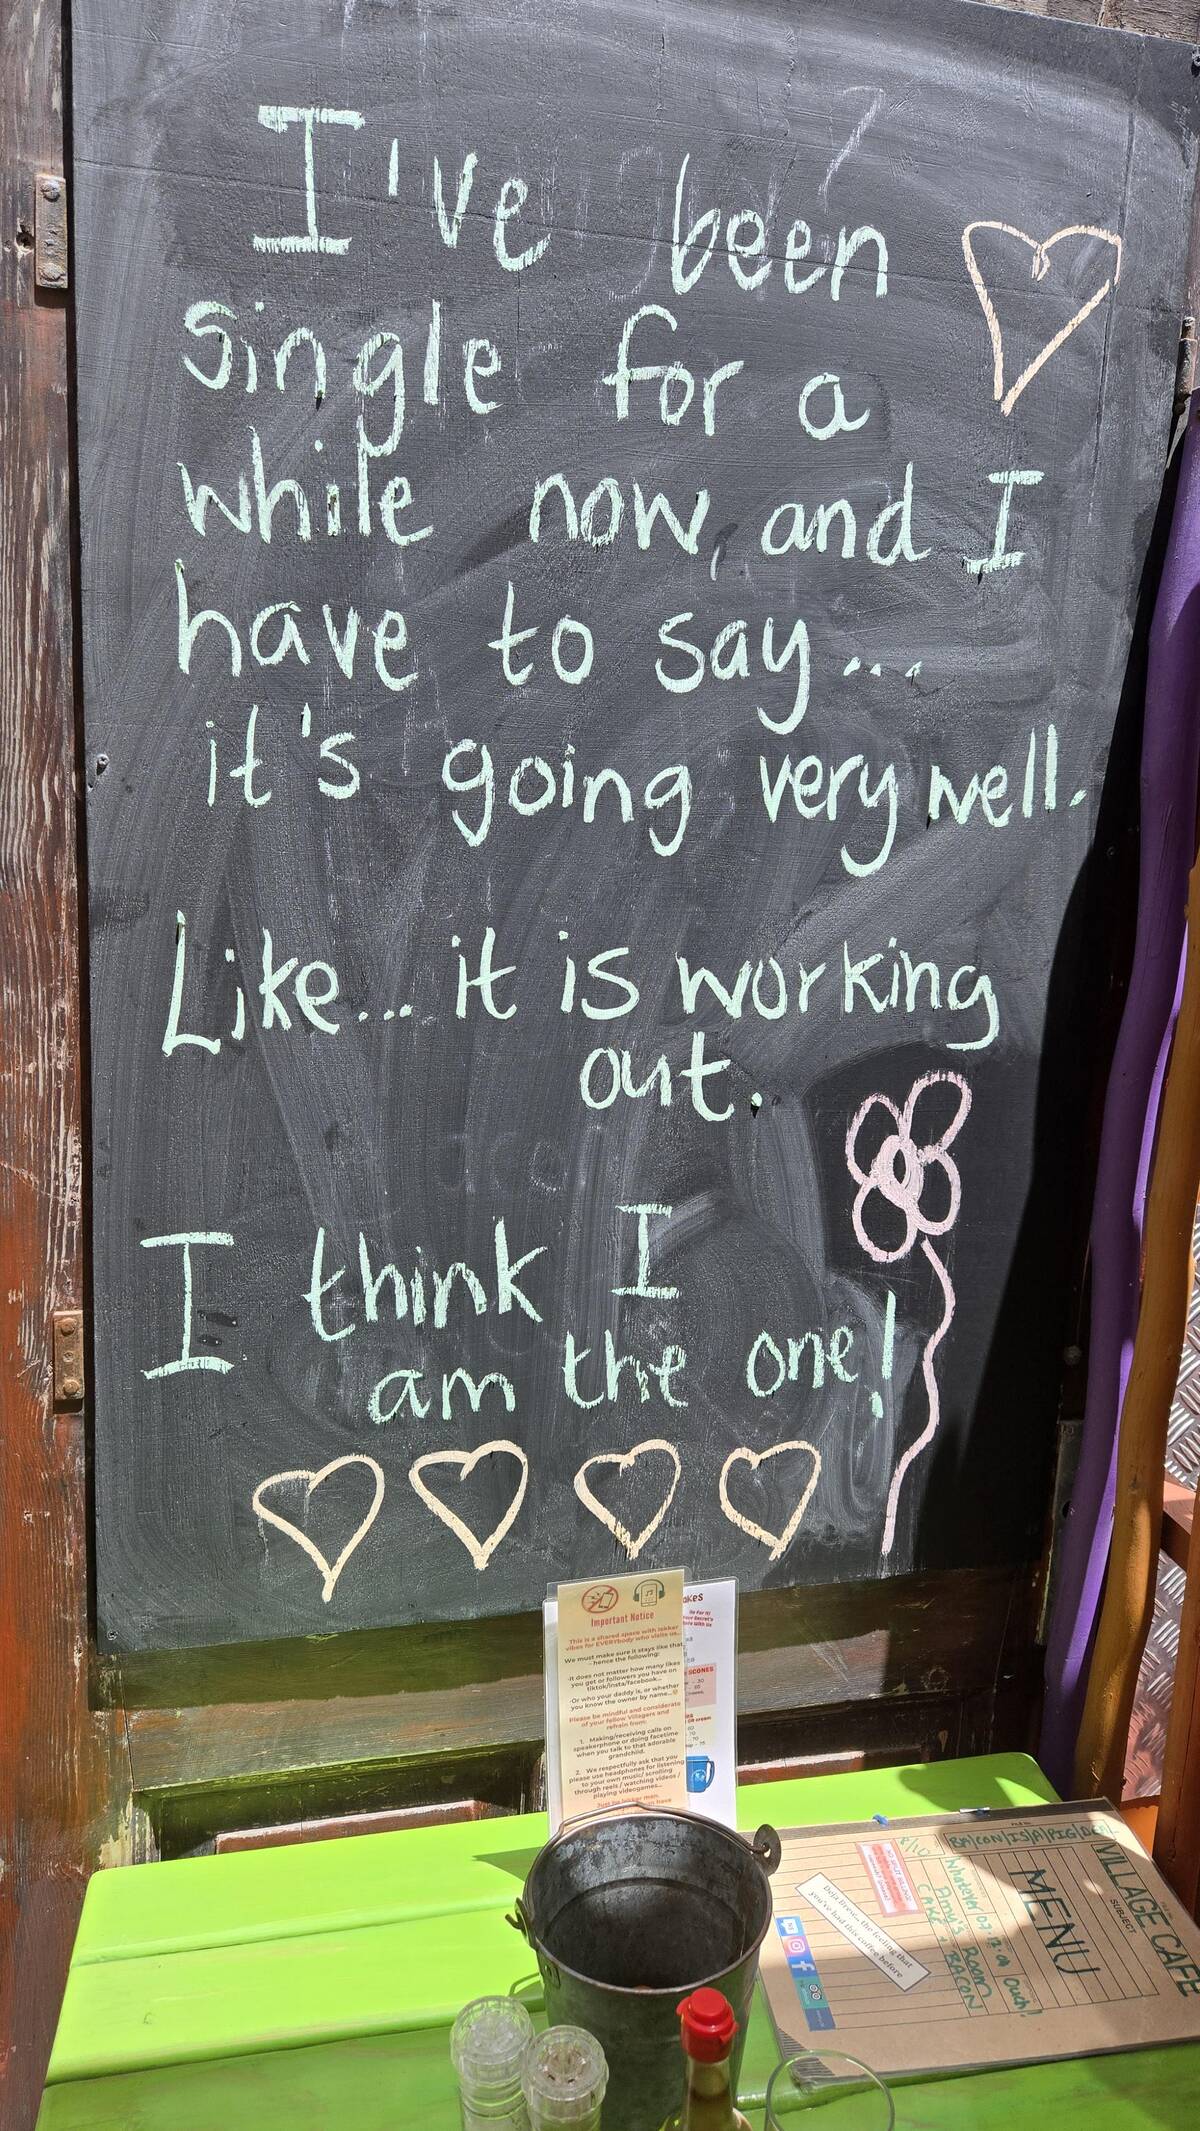 I've been
single for a
while now, and I
have to say...
it's going very well.
Like... it is working
out.
I think I
am the one!
Important Notice
This is a shared space with lekker
vibes for EVERYbody who visits us..
We must make sure it stays like that
- hence the following:
-It does not matter how many likes
you get or followers you have on
tiktok/insta/facebook...
-Or who your daddy is, or whether
you know the owner by name...
Please be mindful and considerate
of your fellow Villagers and
refrain from:
1. Making/receiving calls on
speakerphone or doing facetime
when you talk to that adorable
grandchild.
2. We respectfully ask that you
please use headphones for listening
to your own music/ scrolling
through reels / watching videos /
playing videogames...
Just be lekker man.
SCONES
VILLAGE CAFE
SUBJECT
MENU
BACON|IS|A|PIG|DEAL
Whatever
Amy's Room
CAKE + BACON
Ouch!
Deja Brew... the feeling that
you've had this coffee before